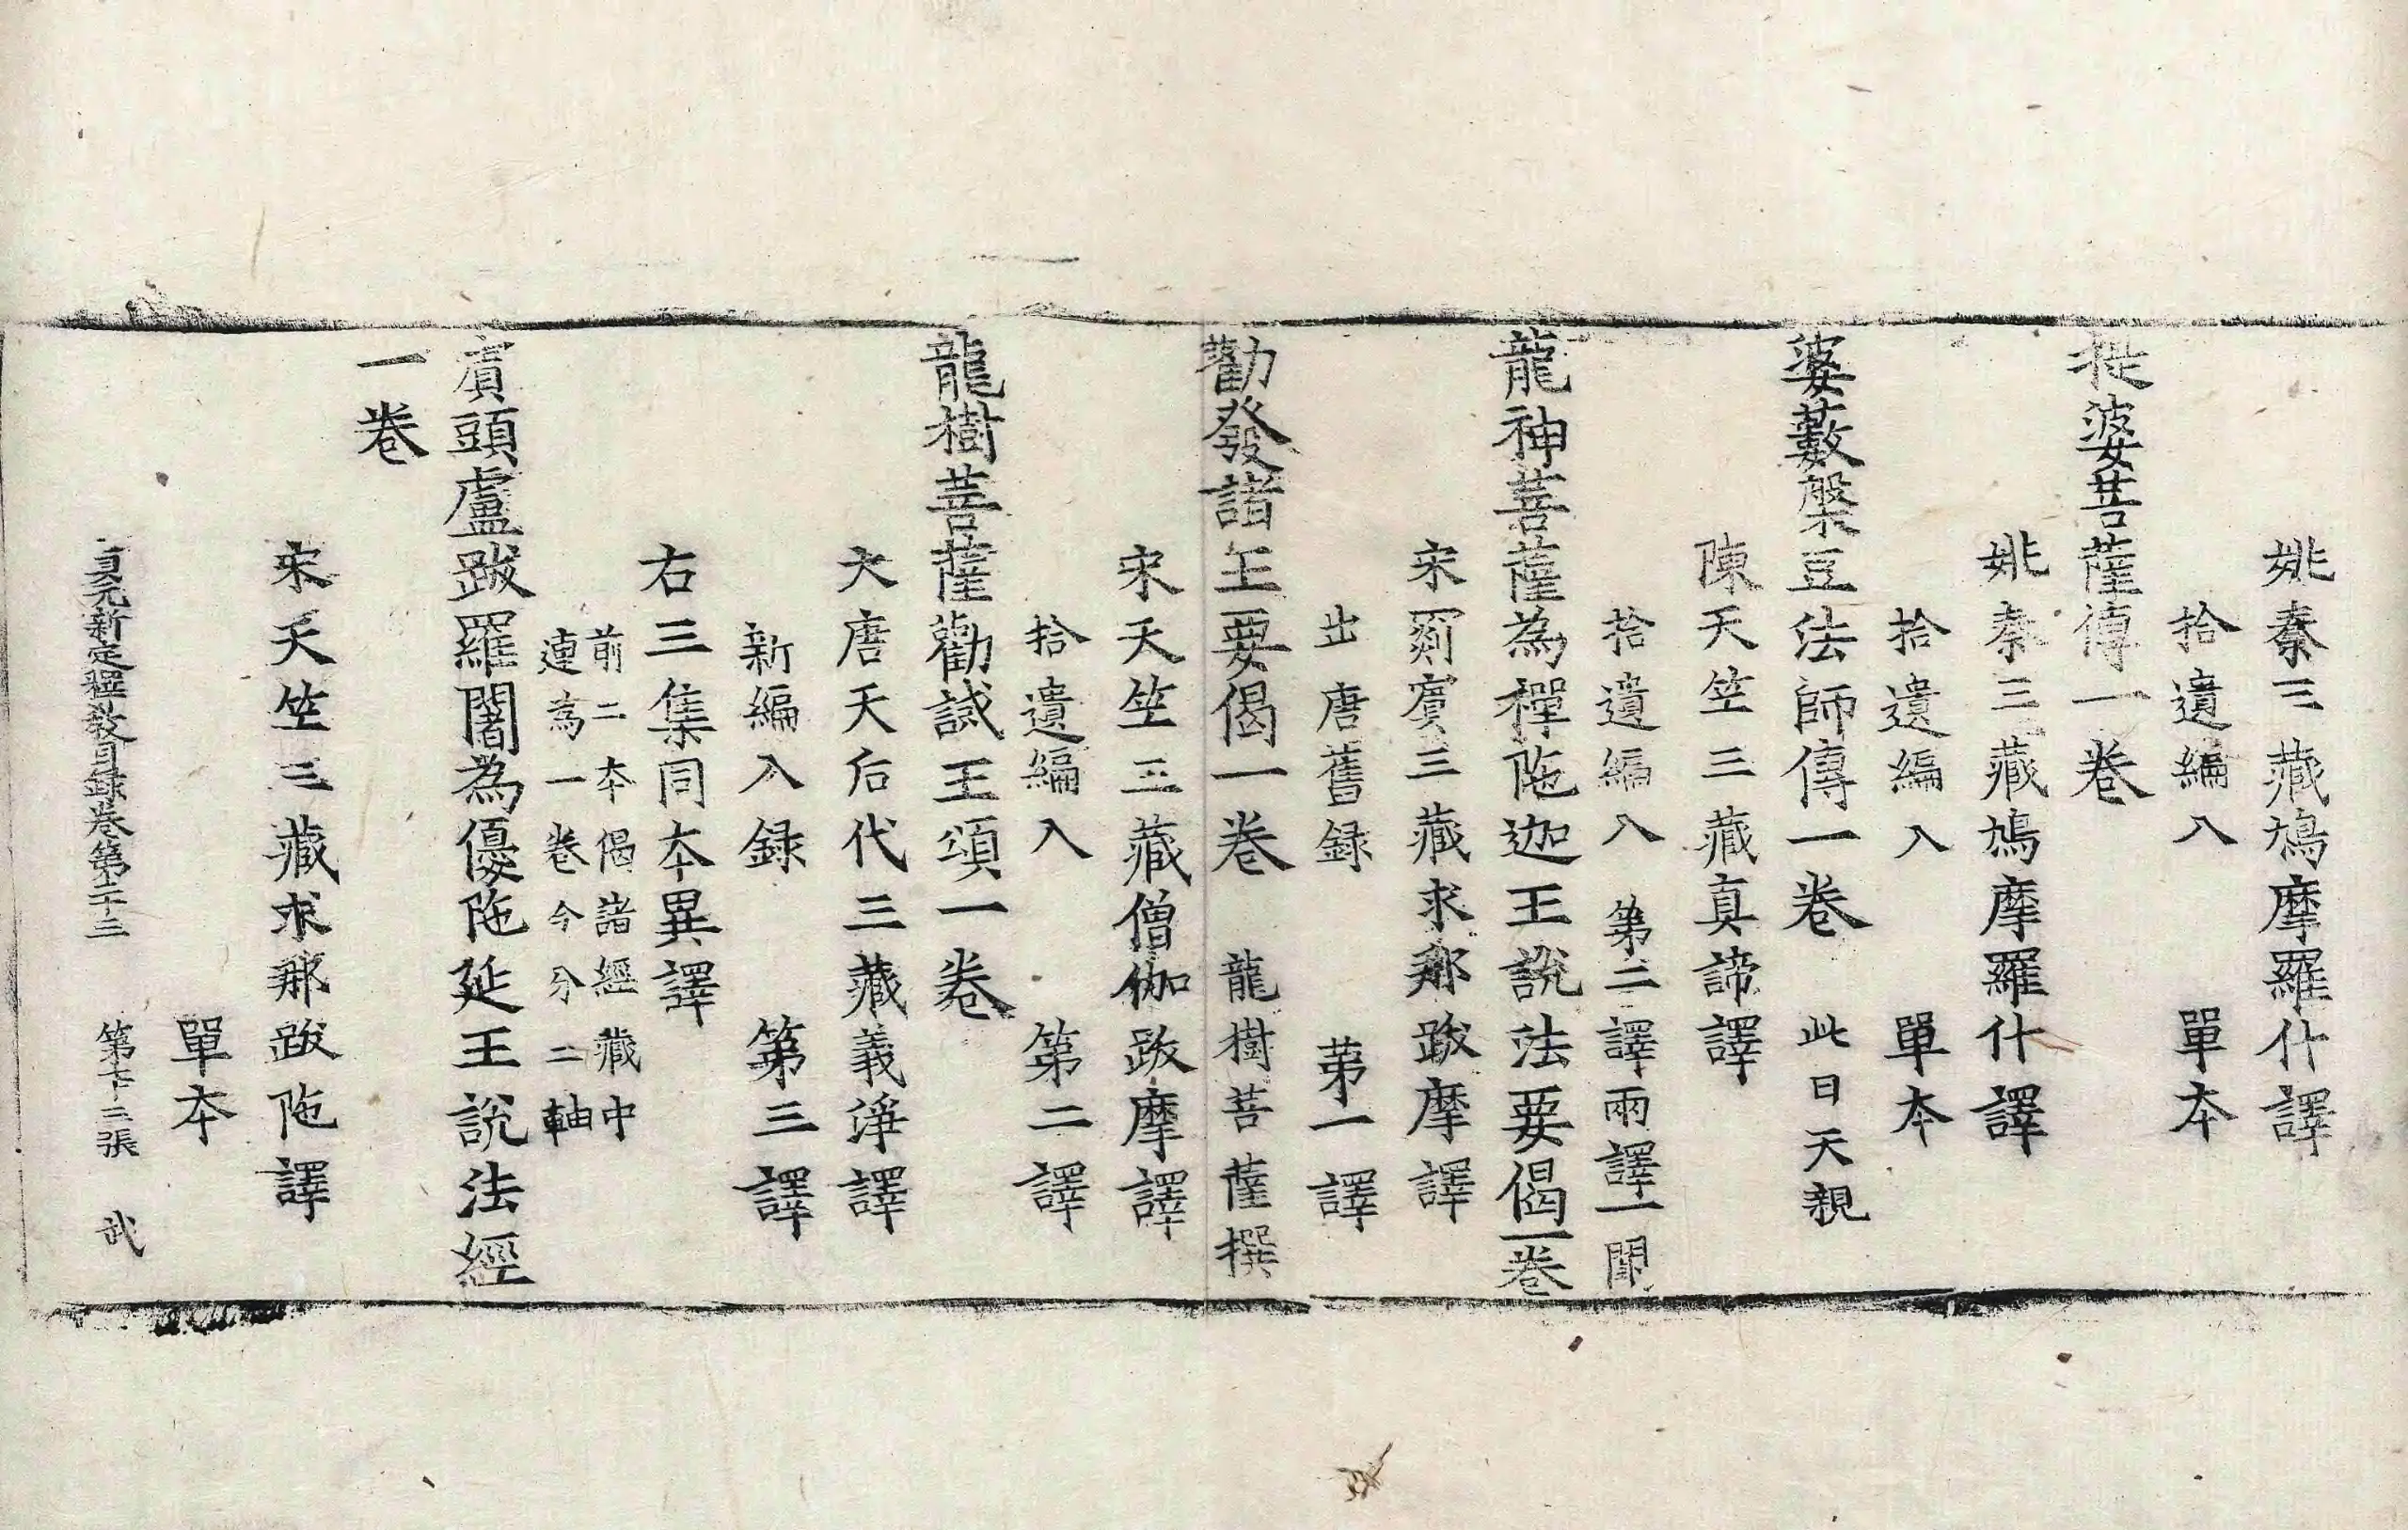 姚秦三藏鳩摩羅什譯
拾遺編入　單本
提婆菩薩傳一卷
姚秦三藏鳩摩羅什譯
拾遺編入　單本
婆藪槃豆法師傳一卷　此曰天親
陳天竺三藏真諦譯
拾遺編入　第二譯兩譯一闕
龍神菩薩為禪陁迦王說法要偈一卷
宋罽賓三藏求那跋摩譯
出唐舊録　第一譯
勸發諸王要偈一卷　龍樹菩薩撰
宋天竺三藏僧伽跋摩譯
拾遺編入　第二譯
龍樹菩薩勸誡王頌一卷
大唐天后代三藏義淨譯
新編入録　第三譯
右三集同本異譯
前二本偈諸經藏中
連為一卷今分二軸
賓頭盧跋羅闍為優陁延王說法經
一卷
宋天竺三藏求那跋陁譯
單本
貞元新定釋教目録卷第二十三　第七十三張　武